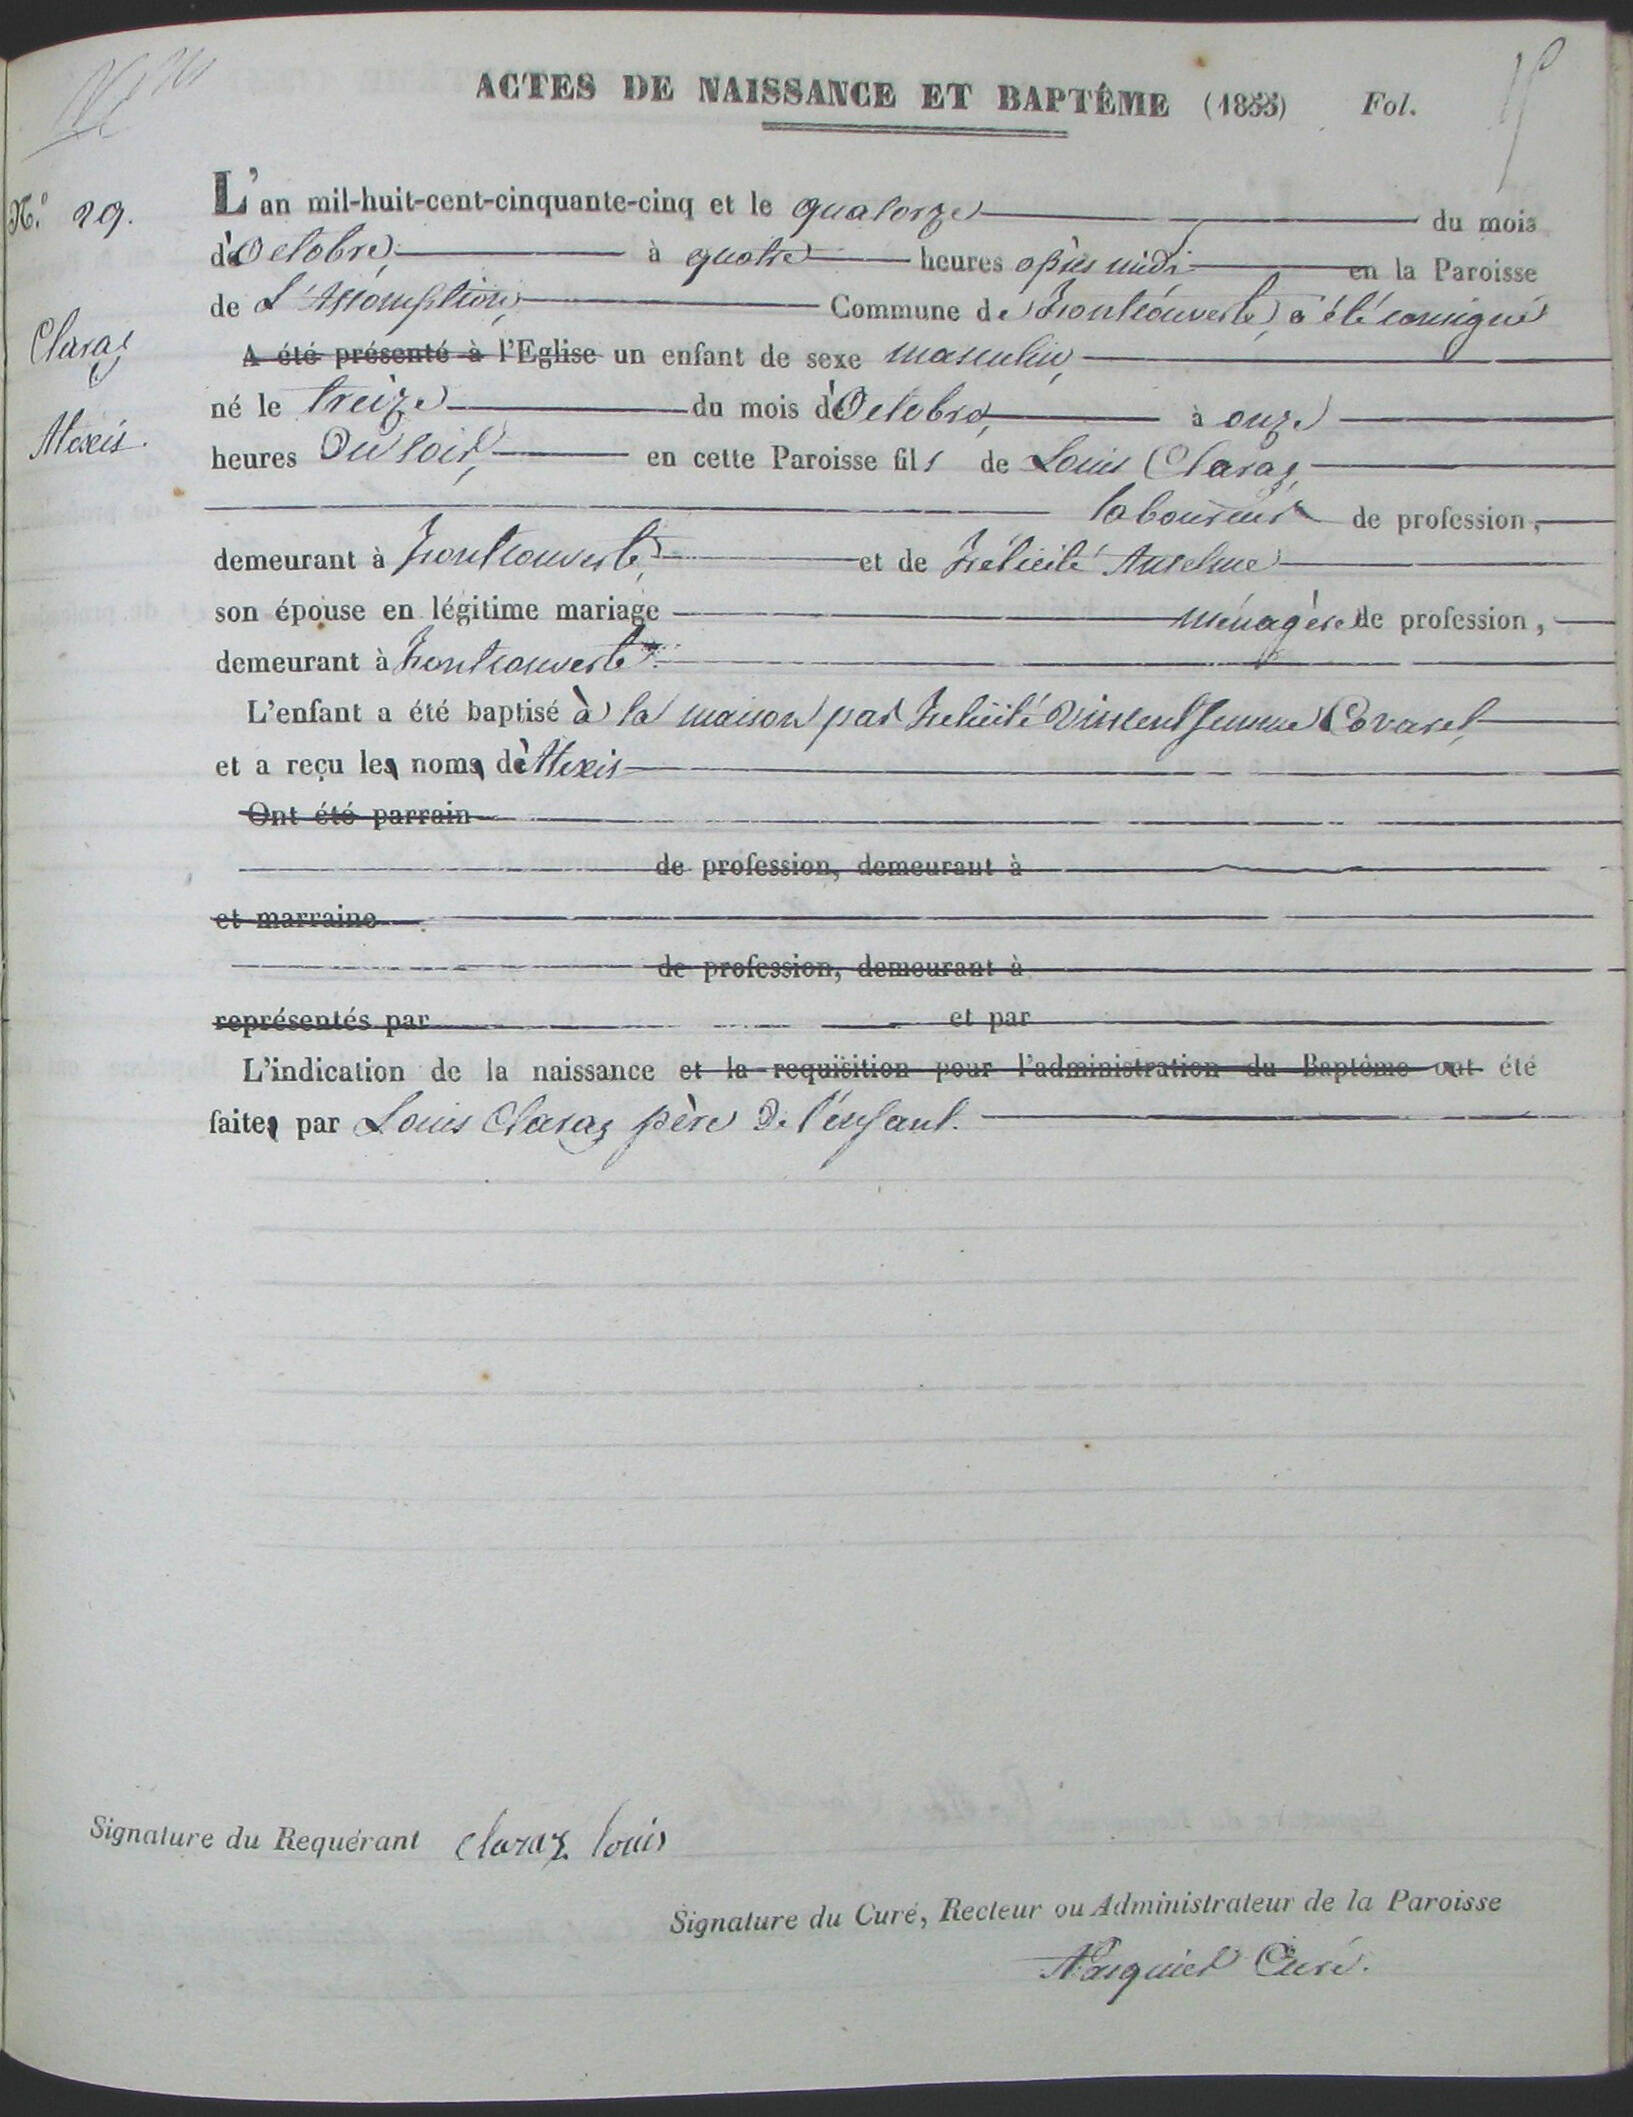 ACTES DE NAISSANCE ET BAPTÊME (1855) Fol.
N.º 29.
L'an mil-huit-cent-cinquante-cinq et le quatorze du mois
d'Octobre à quatre heures après midi en la Paroisse
de L'Assomption, Commune de Montrouverte, a été consigné
Claraz
Alexis.
A été présenté à l'Eglise un enfant de sexe masculin,
né le treize du mois d'Octobre, à onze
heures Du soir, en cette Paroisse fils de Louis Claraz,
laboureur de profession,
demeurant à Fontcouverte, et de Félicité Anselme
son épouse en légitime mariage ménagère de profession,
demeurant à Fontcouverte.
L'enfant a été baptisé à la maison par Félicité Vincent femme Covarel,
et a reçu le nom d'Alexis
Ont été parrain
de profession, demeurant à
et marraine
de profession, demeurant à
représentés par et par
L'indication de la naissance et la requisition pour l'administration du Baptême ont été
faite par Louis Claraz père De l'enfant.
Signature du Requérant Claraz louis
Signature du Curé, Recteur ou Administrateur de la Paroisse
Curé.